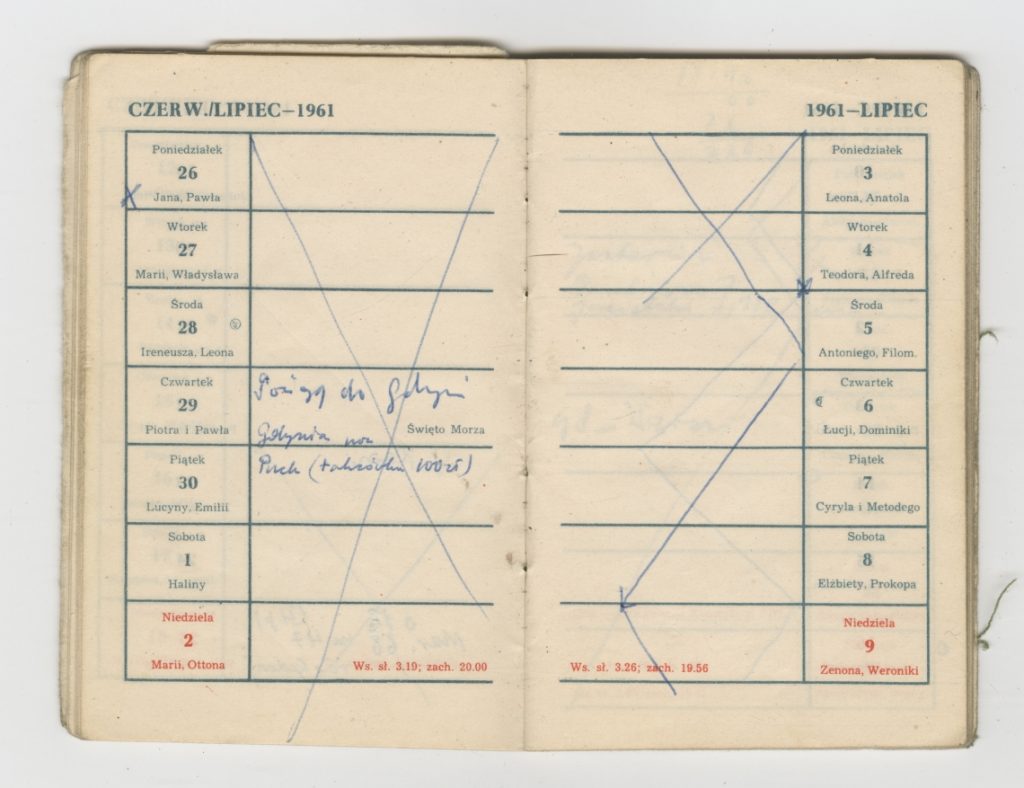 CZERW./LIPIEC—1961
Poniedziałek
26
Jana, Pawła
Wtorek
27
Marii, Władysława
Środa
28
Ireneusza, Leona
Czwartek
29
Piotra i Pawła
do Gdyni
Gdynia noc
Święto Morza
Piątek
30
Lucyny, Emilii
Puck (taksówka 100 zł)
Sobota
1
Haliny
Niedziela
2
Marii, Ottona
Ws. sł. 3.19; zach. 20.00
1961—LIPIEC
Poniedziałek
3
Leona, Anatola
Wtorek
4
Teodora, Alfreda
Środa
5
Antoniego, Filom.
Czwartek
6
Łucji, Dominiki
Piątek
7
Cyryla i Metodego
Sobota
8
Elżbiety, Prokopa
Niedziela
9
Zenona, Weroniki
Ws. sł. 3.26; zach. 19.56